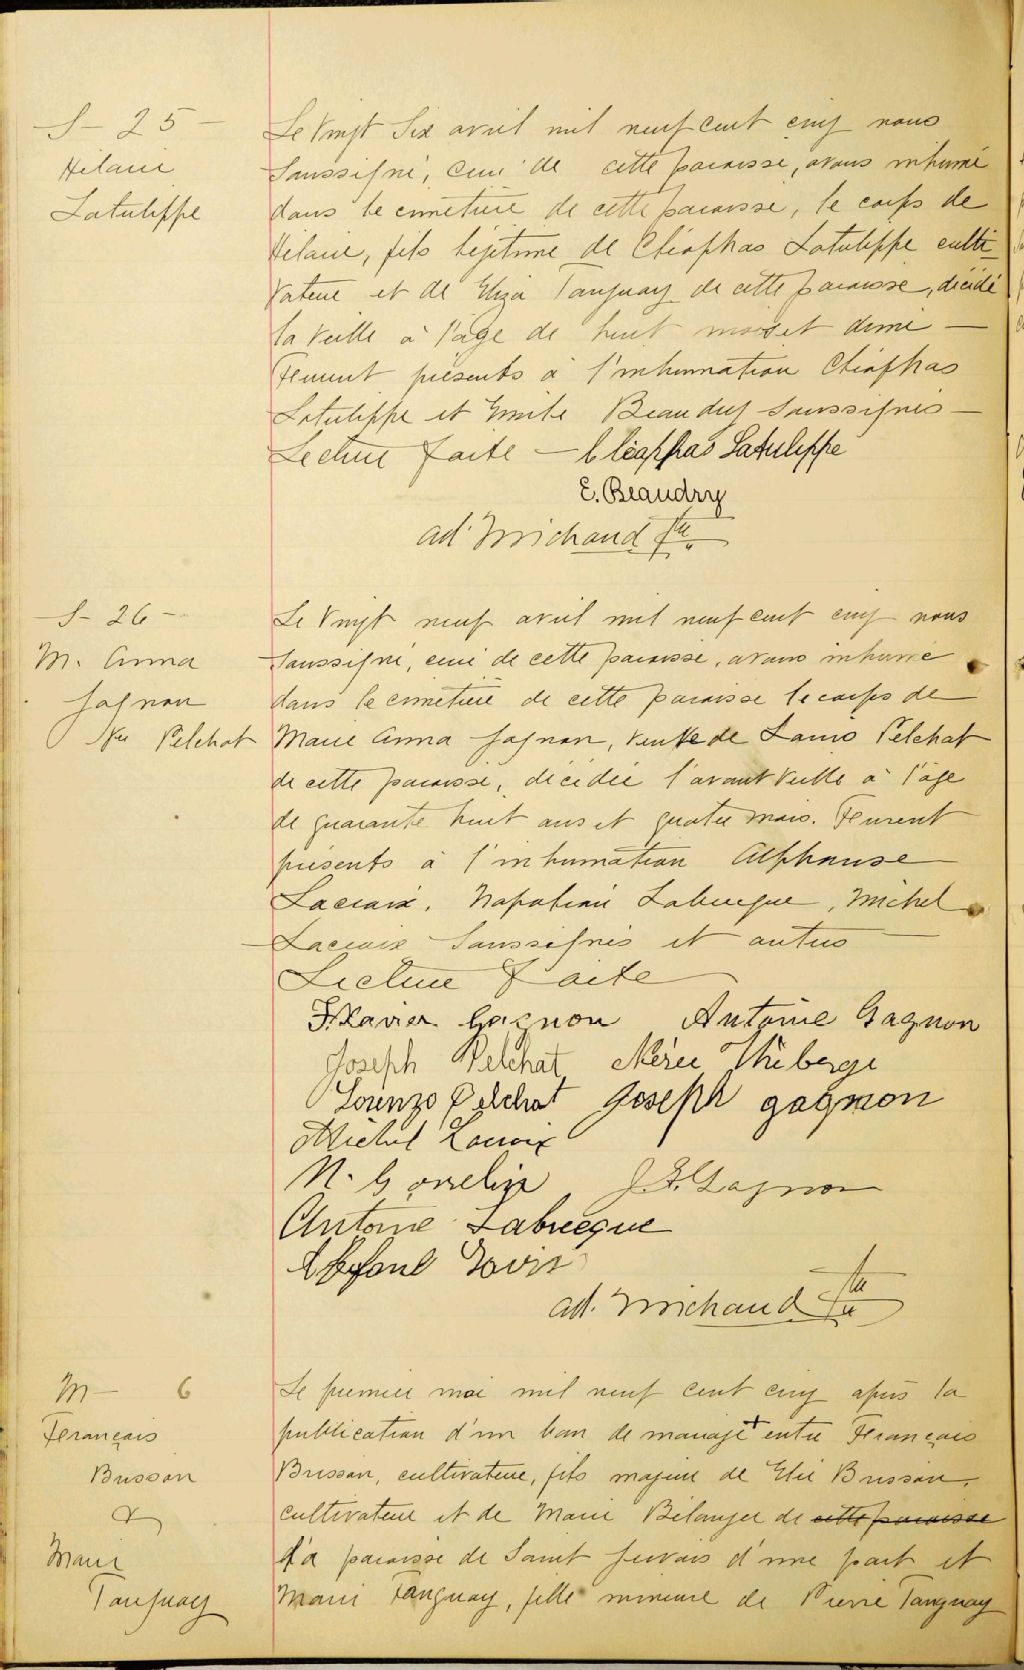 S - 25 -
Hilaire
Latulippe
Le vingt six avril mil neuf cent cinq nous
soussigné, curé de cette paroisse, avons inhumé
dans le cimetière de cette paroisse, le corps de
Hilaire, fils légitime de Cléophas Latulippe culti-
vateur et de Eliza Tanguay de cette paroisse, décédé
la veille à l'âge de huit mois et demi —
Furent présents à l'inhumation Cléophas
Latulippe et Emile Beaudry soussignés —
Lecture faite — Cléophas Latulippe
E. Beaudry
Ad. Michaud Ptre
S - 26 -
M. Anna
Gagnon
Ve Pelchat
Le vingt neuf avril mil neuf cent cinq nous
soussigné, curé de cette paroisse, avons inhumé
dans le cimetière de cette paroisse le corps de
Marie Anna Gagnon, veuve de Louis Pelchat
de cette paroisse, décédée l'avant veille à l'âge
de quarante huit ans et quatre mois. Furent
présents à l'inhumation Alphonse
Lacroix, Napoléon Labrecque, Michel
Lacroix soussignés et autres —
Lecture faite
F. Xavier Gagnon Antoine Gagnon
Joseph Pelchat Nérée Théberge
Lorenzo Pelchat Joseph gagnon
Michel Lacroix
N. Gosselin J. F. Gagnon
Antoine Labrecque
Ad. Michaud Ptre
M - 6
François
Brisson
&
Marie
Tanguay
Le premier mai mil neuf cent cinq après la
publication d'un ban de mariage + entre François
Brisson, cultivateur, fils majeur de Elie Brisson,
cultivateur et de Marie Bélanger de cette paroisse
la paroisse de Saint Gervais d'une part et
Marie Tanguay, fille mineure de Pierre Tanguay